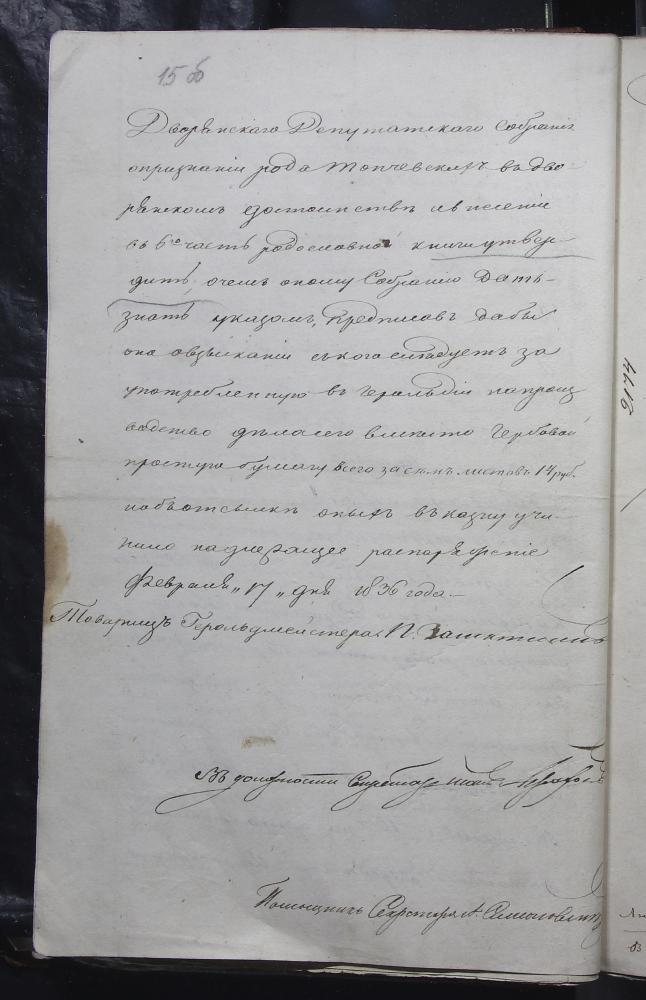 15 об
Дворянскаго Депутатскаго Собранія
о признаніи рода Топчевскихъ въ дво-
рянскомъ достоинствѣ и внесеніи
въ 6ю часть родословной книги утвер-
дить; о чемъ оному Собранію дать
знать указомъ, предписавъ дабы
оно о взысканіи съ кого слѣдуетъ за
употребленную въ Герольдіи на произ
водство дѣла сего вмѣсто Гербовой
простую бумагу всего за семь листовъ 14 руб.
и объ отсылкѣ оныхъ въ казну учи-
нило надлежащее распоряженіе
Февраля „17„ дня 1836 года.
Товарищъ Герольдмейстера П.
Въ должности Секретаря
Помощникъ Секретаря А.
2174